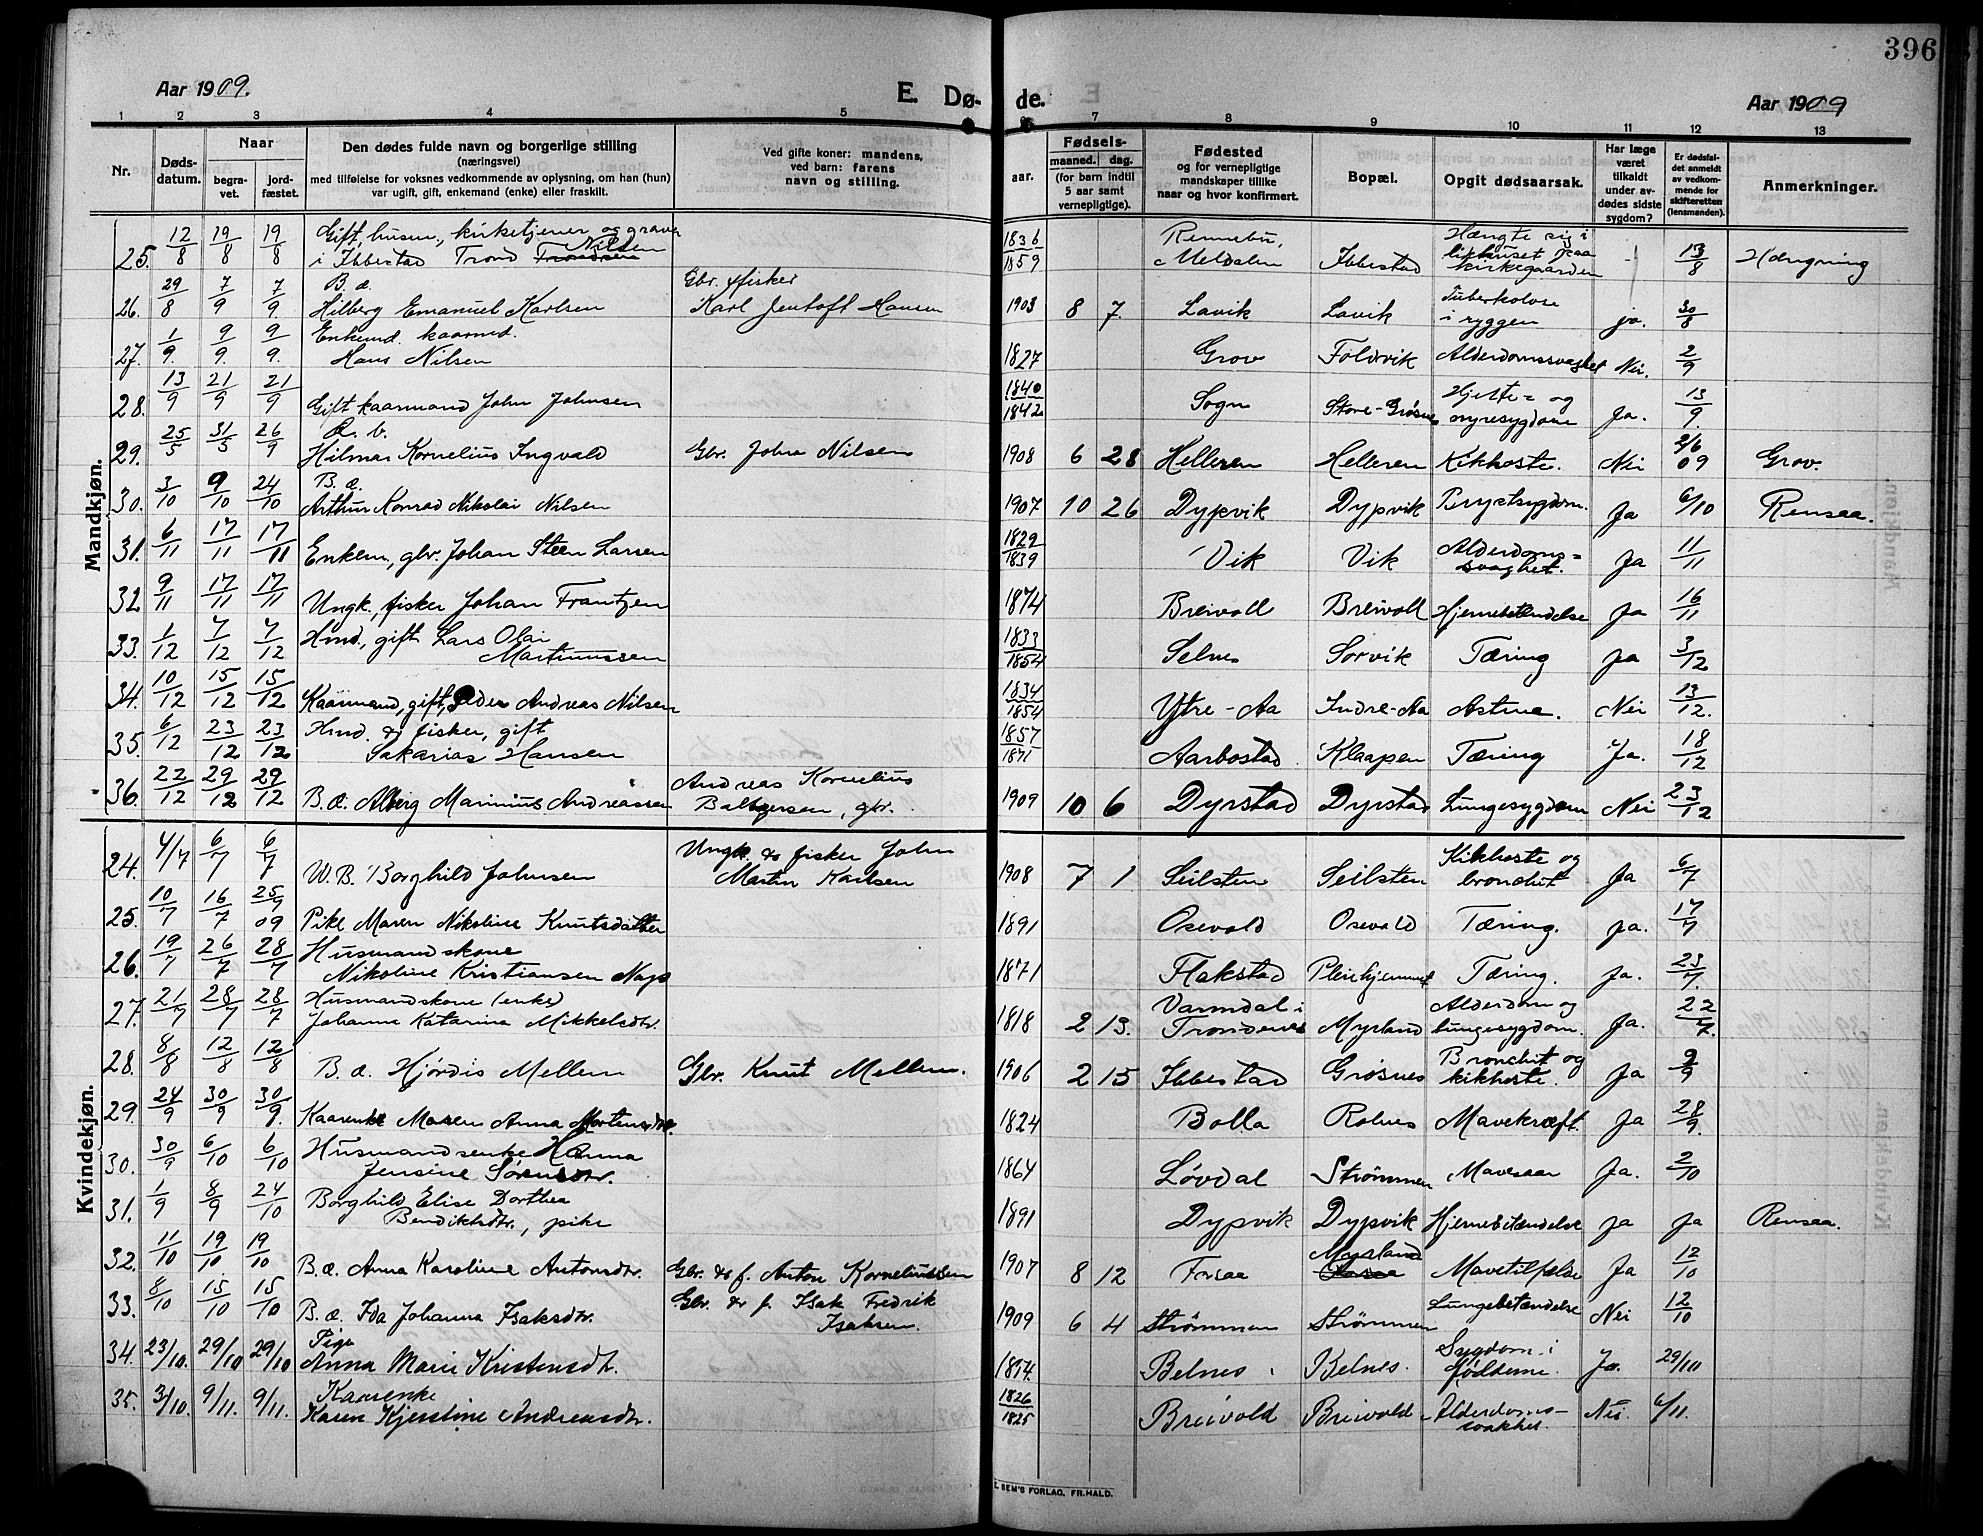 Aar 1909.
E. Dø-
de.
Aar 1909
396
1 2 3 4 5 7 8 9 10 11 12 13
Nr.
Døds-
datum.
Naar
begra-
vet.
jord-
fæstet.
Den dødes fulde navn og borgerlige stilling
(næringsvei)
med tilføielse for voksnes vedkommende av oplysning, om han (hun)
var ugift, gift, enkemand (enke) eller fraskilt.
Ved gifte koner: mandens,
ved barn: farens
navn og stilling.
aar.
Fødsels-
maaned. dag.
(for barn indtil
5 aar samt
vernepligtige).
Fødested
og for vernepligtige
mandskaper tillike
naar og hvor konfirmert.
Bopæl.
Opgit dødsaarsak.
Har læge
været
tilkaldt
under av-
dødes sidste
sygdom?
Er dødsfal-
det anmeldt
av vedkom-
mende for
skifteretten
(lensmanden).
Anmerkninger.
Mandkjøn.
25. 12/8 19/8 19/8 Gift, husm., kirketjener og graver
i Ibbestad Trond Trondsen Nilsen
1836/1859 Rennebu, Meldalen Ibbestad Hængte sig i likhuset paa kirkegaarden - 13/8 Hængning
26. 29/8 7/9 7/9 B. æ.
Hilberg Emanuel Karlsen Gbr. fisker
Karl Jentoft Hansen 1903 8 7. Lavik Lavik Tuberkolose i ryggen ja. 30/8
27. 1/9. 9/9. 9/9. Enkemd. kaarmd.
Hans Nilsen 1827 Grov Foldvik Alderdomssvaghet Nei. 2/9
28. 13/9 21/9 21/9 Gift kaarmand John Johnsen 1840/1842 Sogn Store-Grøsnes Hjerte- og nyresygdom Ja. 13/9.
29. 25/5 31/5 26/9
Hilmar Kornelius Ingvald Gbr. Johan Nilsen 1908 6 28 Helleren Helleren Kikhoste. Nei 2/6 09 Grov.
30. 3/10 9/10 24/10 B. æ.
Arthur Konrad Nikolai Nilsen 1907 10 26 Dypvik Dypvik Brystsygdom. Ja 6/10 Rensaa.
31. 6/11 17/11 17/11 Enkem, gbr. Johan Steen Larsen 1829/1839 Vik Vik Alderdoms=
svaghet. Ja 11/11
32 9/11 17/11 17/11 Ungk., fisker Johan Frantzen 1874 Breivoll Breivoll Hjernebetændelse Ja 16/11
33. 1/12 7/12 7/12 Hmd., gift Lars Olai
Martinussen 1833/1854 Selnes Sørvik Tæring ja 3/12
34. 10/12 15/12 15/12 Kaarmand, gift, Peder Andreas Nilsen 1834/1854 Ytre-Aa Indre-Aa Astma. Nei 13/12.
35. 6/12 23/12 23/12 Hmd. & fisker, gift
Sakarias Hansen 1857/1871 Aarbostad Klaapen Tæring Ja. 18/12
36. 22/12 29/12 29/12 B. æ. Alberg Marinius Andreassen Andreas Kornelius
Baltzersen, gbr. 1909 10 6 Dyrstad Dyrstad Lungesygdom Nei 23/12
Kvindekjøn.
24. 4/7 6/7 6/7 U. B. Borghild Johnsen Ungk. & fisker John
Martin Karlsen 1908 7 1 Seilsten Seilsten Kikhoste og
bronchit Ja 6/7
25. 10/7 16/7 25/9 09 Pike Maren Nikoline Knutsdatter 1891 Osevold Osevold Tæring. ja. 17/7
26. 19/7 26/7 28/7 Husmandskone
Nikoline Kristiansen Nags 1871 Flakstad Pleiehjemmet Tæring. Ja. 23/7.
27. 21/7 28/7 28/7 Husmandskone (enke)
Johanna Katarina Mikkelsdtr. 1818 2 13. Vanndal i
Trondenes Myrland Alderdom og
lungesygdom. Ja. 22/7.
28. 8/8 12/8 12/8 B. æ. Hjørdis Mellem Gbr. Knut Mellem. 1906 2 15 Ibbestad Grøsnes Bronchit og
kikhoste. Ja 9/9
29. 24/9 30/9 30/9. Kaarenke Maren Anna Mortensdtr. 1824 Bolla Rolnes Mavekræft. Ja 28/9.
30. 30/9 6/10 6/10 Husmandsenke Hanna
Jensine Sørensdtr. 1864 Løvdal Strømmen Mavesaar Ja. 2/10
31. 1/9 8/9 24/10 Borghild Elise Dorthea
Bendiktsdtr., pike 1891 Dypvik Dypvik Hjernebetændelse ja ja Rensaa.
32. 11/10 19/10 19/10 B. æ. Anna Karoline Antonsdtr. Gbr. & f. Anton Korneliussen 1907 8 12 Forsaa Myrland Mavetilfælde Ja 12/10
33. 8/10 15/10 15/10 B. æ. Ida Johanna Isaksdtr. Gbr. & f. Isak Fredrik
Isaksen. 1909 6 4 Strømmen Strømmen Lungebetændelse Nei 12/10
34. 23/10. 29/10 29/10 Pige
Anna Marie Kristensdtr. Belnes Belnes. Sygdom i
fødderne. Ja. 29/10
35. 31/10. 9/11. 9/11. Kaarenke
Karen Kjerstine Andreasdtr. 1826/1825 Breivold Breivold Alderdoms-
svakhet. Nei. 6/11.
SEM'S FORLAG, FR.HALD.